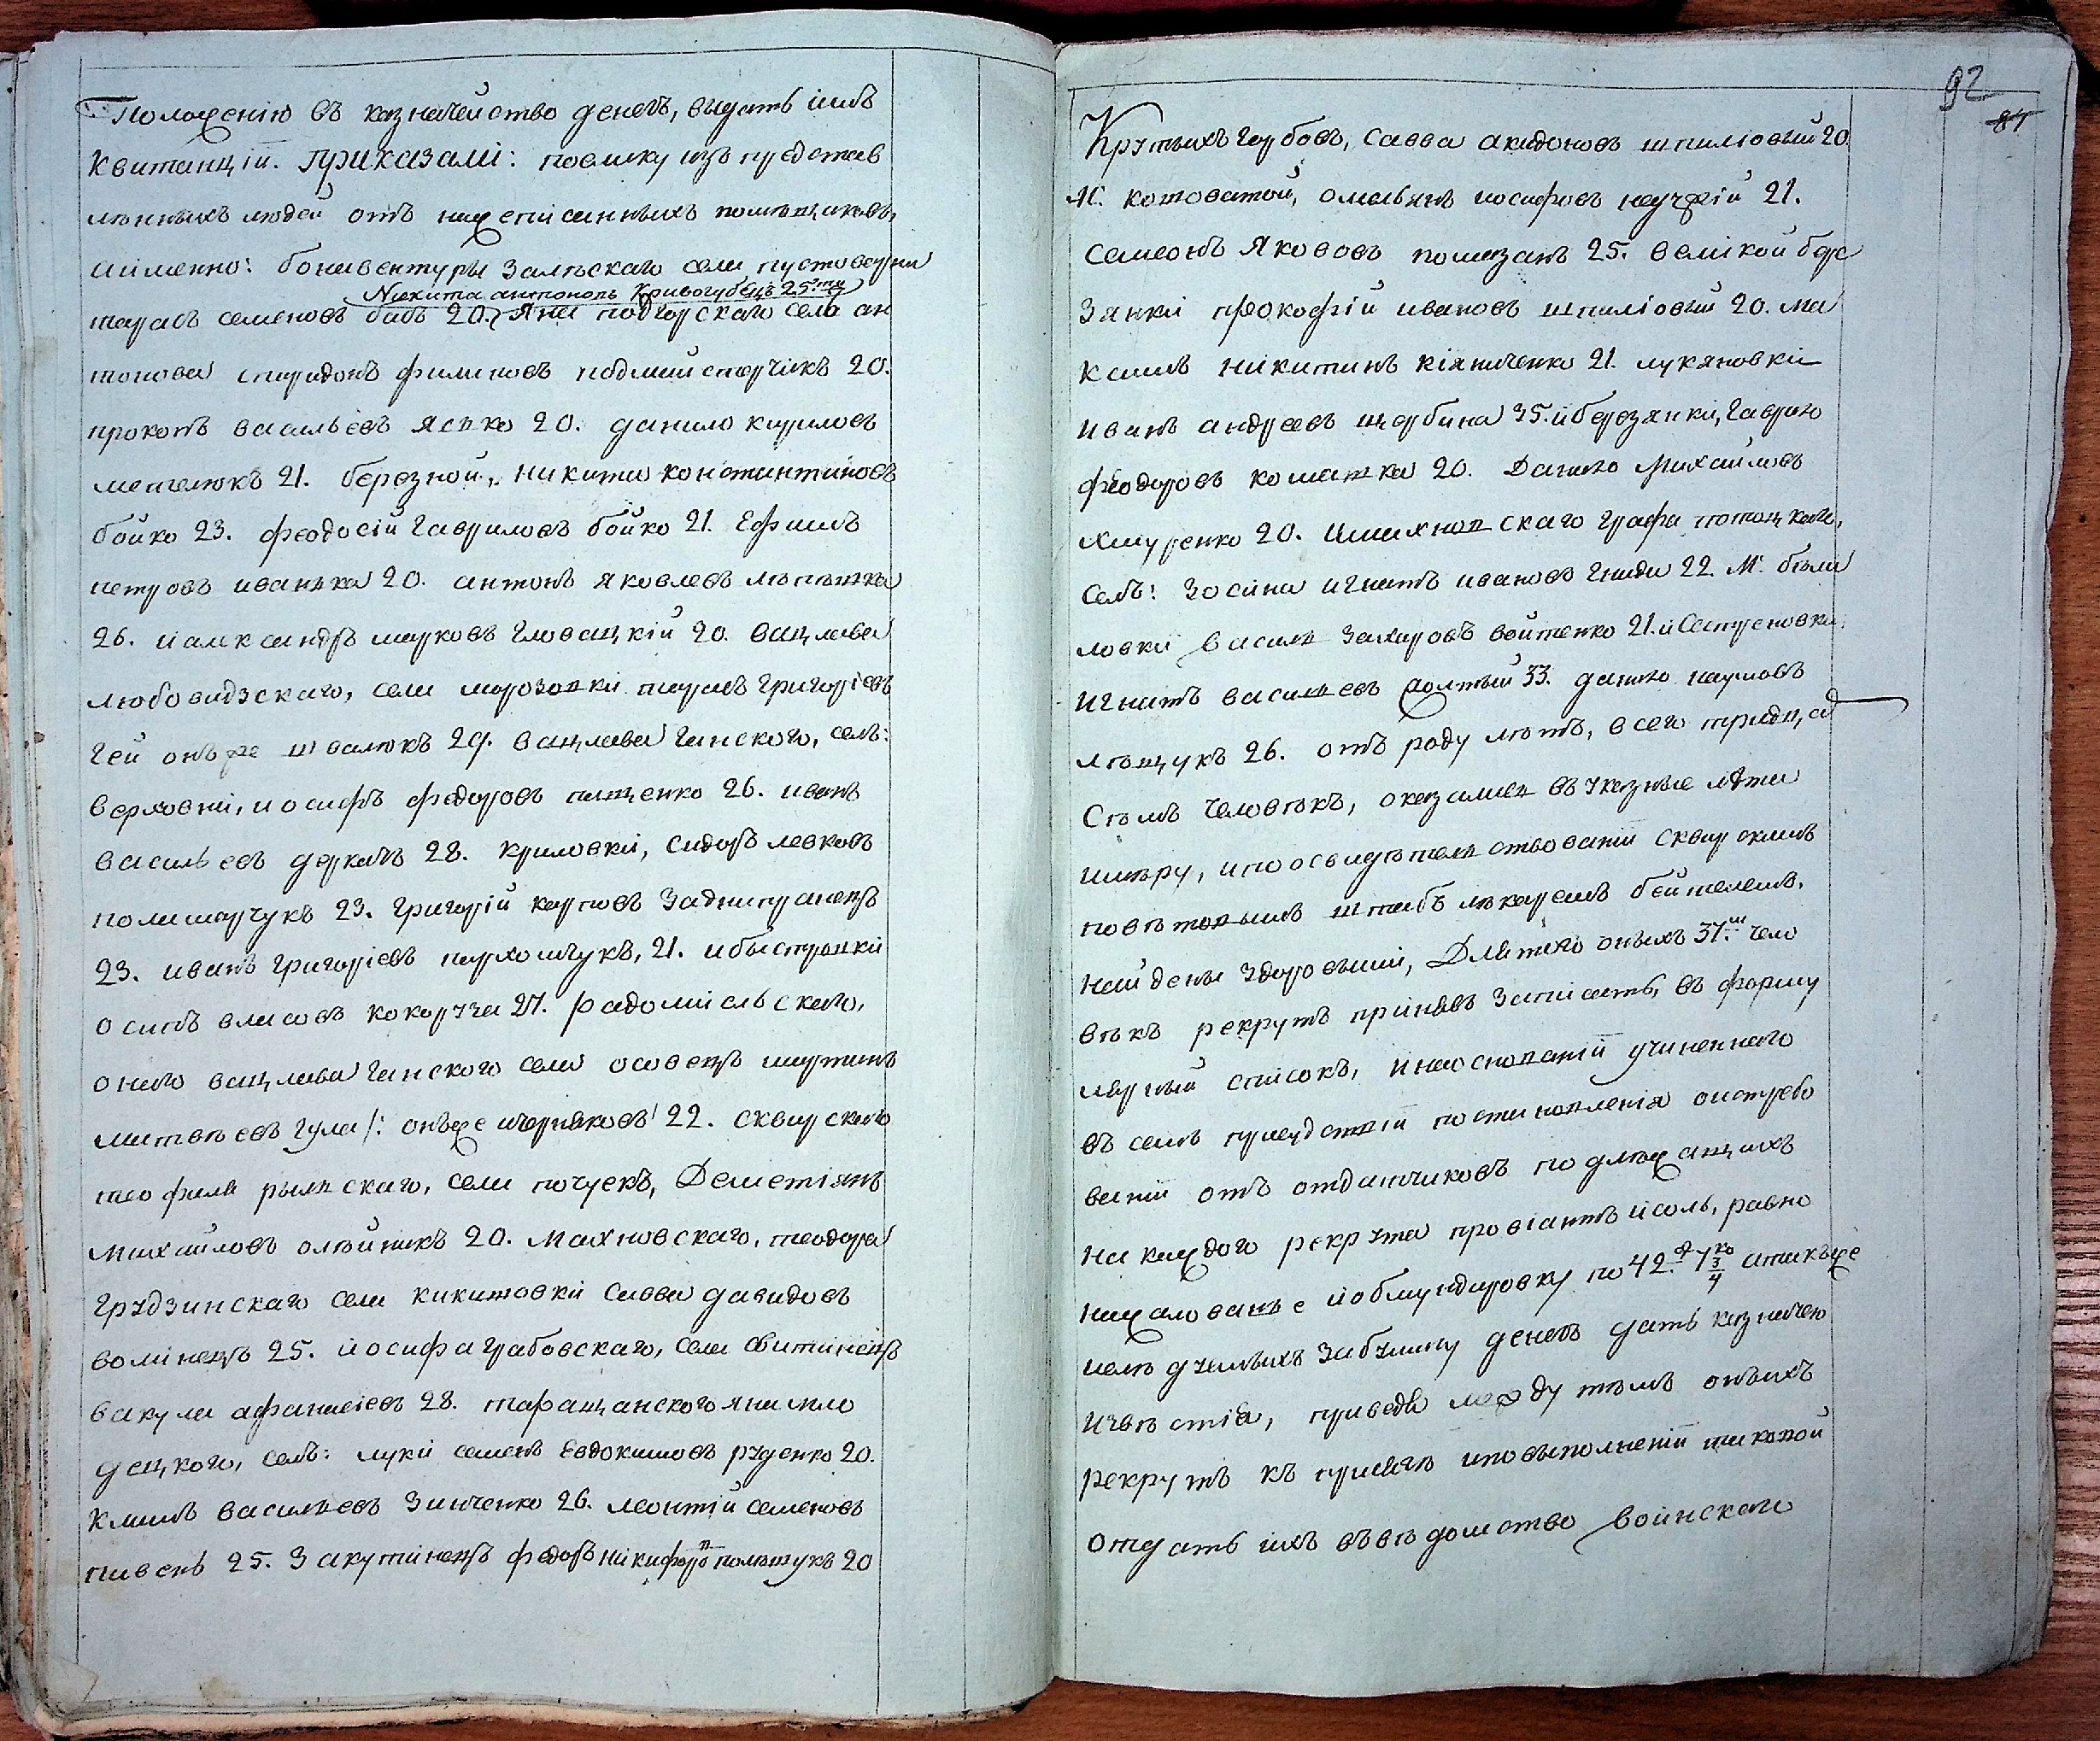 Положенію въ казначейство денегъ, выдать имъ
Квитанціи. Приказали: поелику изъ представ
лѣнныхъ людей отъ нижеписанныхъ помѣщиковъ,
аименно: бонавентуры Залѣскаго села пустоварни
Никита антоновъ Кривогубецъ 25.ти
тарасъ семеновъ бабъ 20. Яна подгорскаго села ан
тонова спиридонъ филиповъ подмайстерчікъ 20.
прокопъ васильевъ Яспко 20. данило кириловъ
21. березной, никита константиновъ
бойко 23. феодосій Гавриловъ бойко 21. Ефимъ
петровъ иванька 20. антонъ яковлевъ
26. иалександръ марковъ Гловацкій 20. вацлава
любовидзскаго, села морозовки тарасъ Григоріевъ
Гей онъже швалюкъ 29. вацлава Ганского, селъ:
верховни, иосифъ федоровъ пащенко 26. иванъ
васильевъ деркачъ 28. криловки, сидоръ левковъ
полимарчукъ 23. Григорій карповъ Заднипранецъ
23. иванъ Григоріевъ пархомчукъ, 21. ибыстровки
осипъ власовъ кокоруза 27. радомисльскаго,
онаго вацлава Ганского села осовецъ мартинъ
матвѣевъ Гула /: онъже 22. сквирскаго
теофила рыльскаго, села почуекъ, Деметіянъ
михайловъ олѣйникъ 20. махновскаго, теодора
Грудзинскаго села кикишовки савва давидовъ
волинецъ 25. иосифа Грабовскаго, села Свитинецъ
вакула афанасіевъ 28. таращанского яна мло
децкого, селъ: луки семенъ Евдокимовъ руденко 20.
Климъ васильевъ Зинченко 26. леонтій семеновъ
пивень 25. Закутинецъ федоръ никифоровъ полѣщукъ 20
92
87
Крутыхъ горбовъ, савва акидоновъ шпиліовый 20.
м: котоватой, омельянъ иосифовъ 21.
семеонъ Якововъ помазанъ 25. великой бере
Зянки прокофій ивановъ шпиліовый 20. ма
ксимъ никитинъ кіяниченко 21. лукяновки
иванъ андреевъ щербина 35. иберезянки, Гаврило
феодоровъ комашка 20. Данило михайловъ
хмуренко 20. имахновскаго Графа потоцкаго,
селъ: Зосина игнатъ ивановъ Гнида 22. м: бѣли
ловки василь Захаровъ войтенко 21. и
игнатъ васильевъ жолтый 33. данило наумовъ
лѣщукъ 26. отъ роду лѣтъ, всего тридца
Семь человѣкъ, оказались въ указные лѣта
имѣру, ипоосвидѣтельствованіи сквирскимъ
повѣтовымъ штабъ лѣкаремъ бейтелемъ,
найдены здоровыми, Длятого оныхъ 37.ми чело
вѣкъ рекрутъ принявъ Записать, въ форму
лярный списокъ, инаоснованіи учиненнаго
въ семъ присудствіи постановленія оистребо
ваніи отъ отдатчиковъ подлѣжащихъ
на каждого рекрута провіантъ исоль, равно
нажалованье иобмундировку по 42 р. 7 3/4 ко атакъже
забумагу денегъ дать казначею
извѣстія, приведя между тѣмъ оныхъ
рекрутъ къ присягѣ иповыполненіи таковой
отдать ихъ въвѣдомство воинскаго